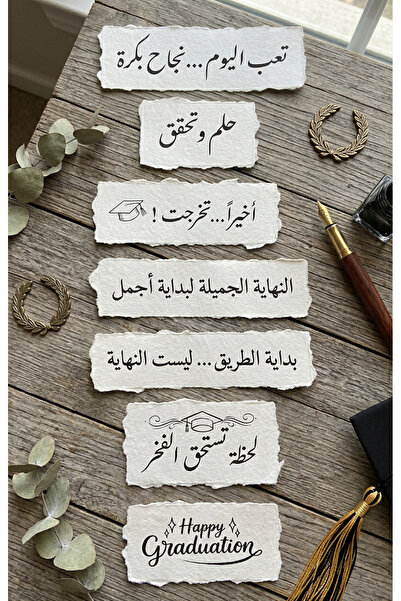 تعب اليوم...نجاح بكرة
حلم وتحقق
أخيراً...تخرجت !
النهاية الجميلة لبداية أجمل
بداية الطريق... ليست النهاية
لحظة تستحق الفخر
Happy
Graduation